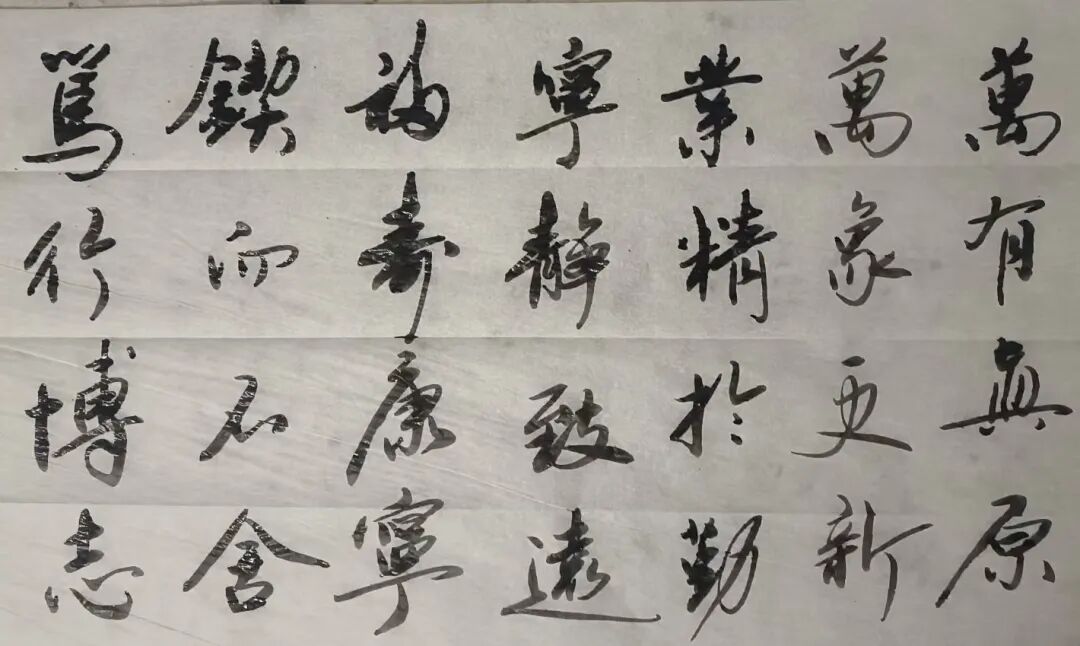 萬有真原
萬象更新
業精於勤
寧静致遠
福壽康寧
鍥而不舍
篤行博志